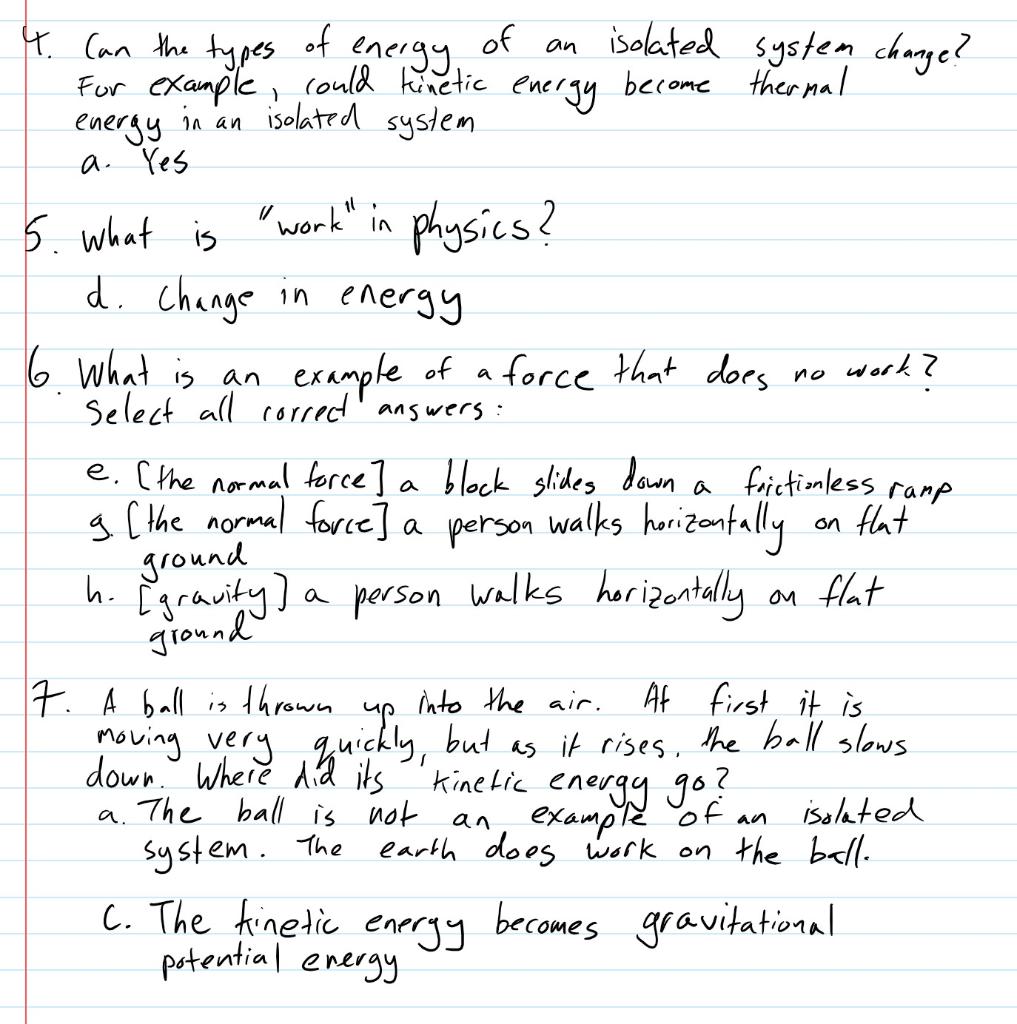 4. Can the types of energy of an isolated system change?
For example, could kinetic energy become thermal
energy in an isolated system
a. Yes
5. What is "work" in physics?
d. Change in energy
6. What is an example of a force that does no work?
Select all correct answers:
e. [the normal force] a block slides down a frictionless ramp
g. [the normal force] a person walks horizontally on flat
ground
h. [gravity] a person walks horizontally on flat
ground
7. A ball is thrown up into the air. At first it is
moving very quickly, but as it rises, the ball slows
down. Where did its kinetic energy go?
a. The ball is not an example of an isolated
system. The earth does work on the ball.
C. The kinetic energy becomes gravitational
potential energy